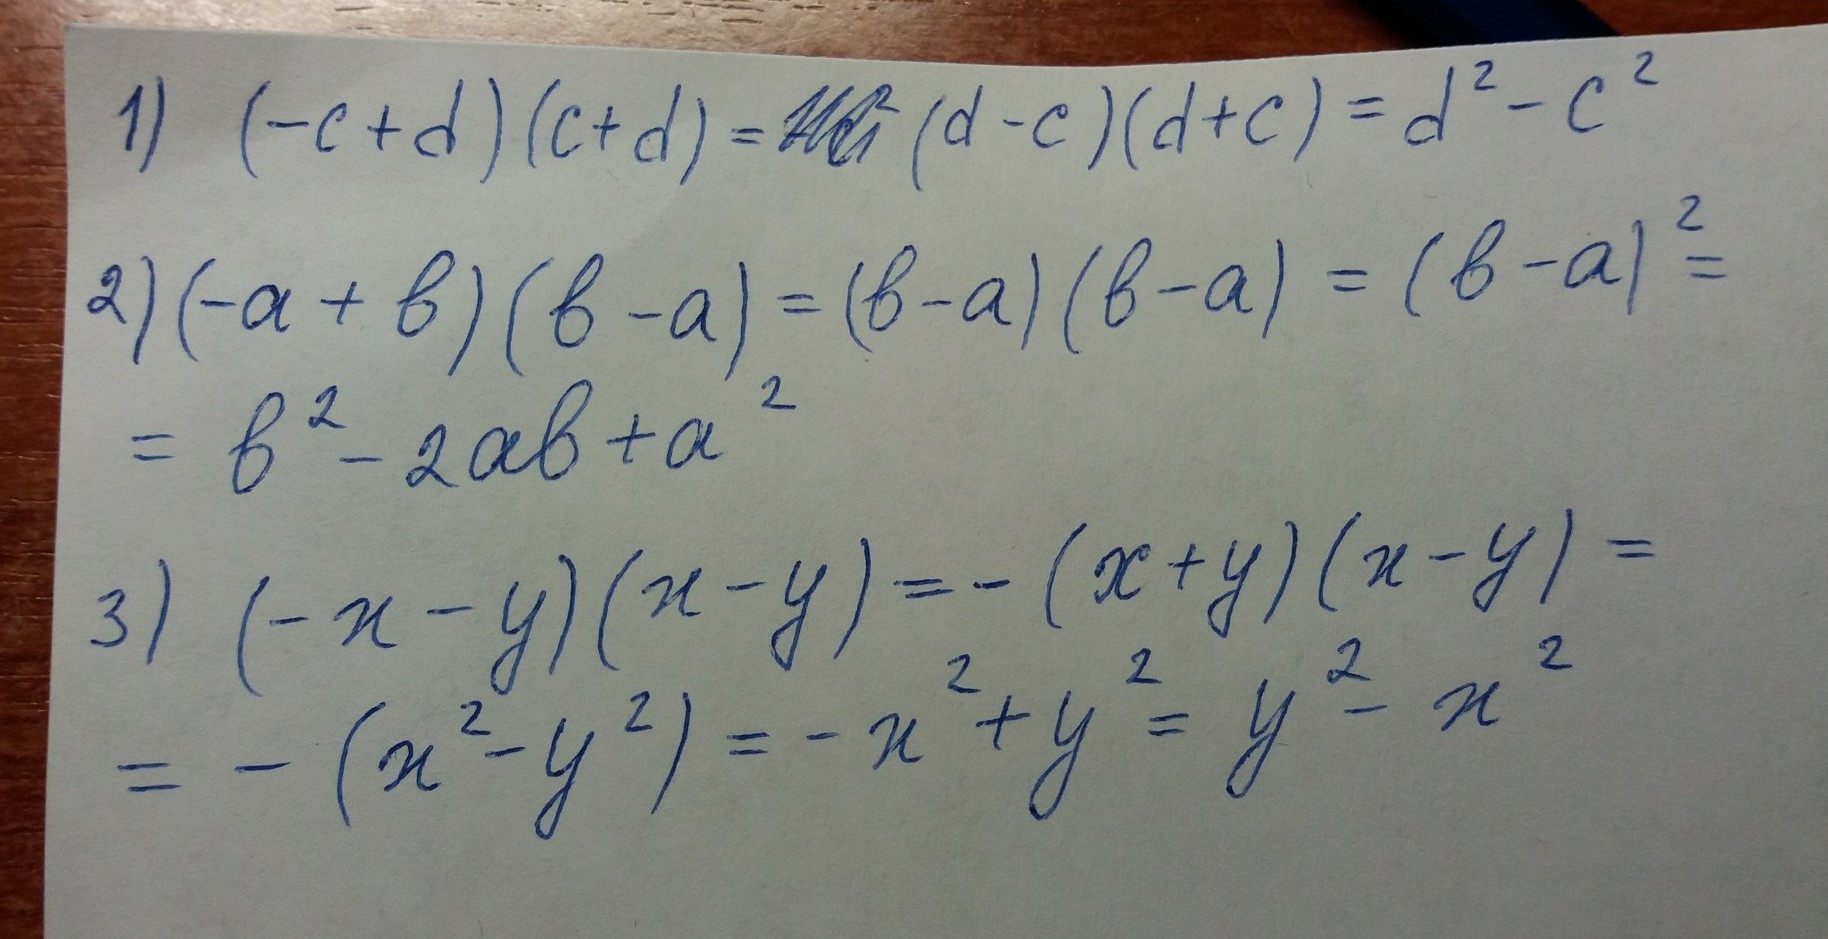 1) (-c+d)(c+d)= (d-c)(d+c)=d²-c²
2)(-a+b)(b-a)=(b-a)(b-a)=(b-a)²=
=b²-2ab+a²
3) (-x-y)(x-y)=-(x+y)(x-y)=
=-(x²-y²)=-x²+y²=y²-x²